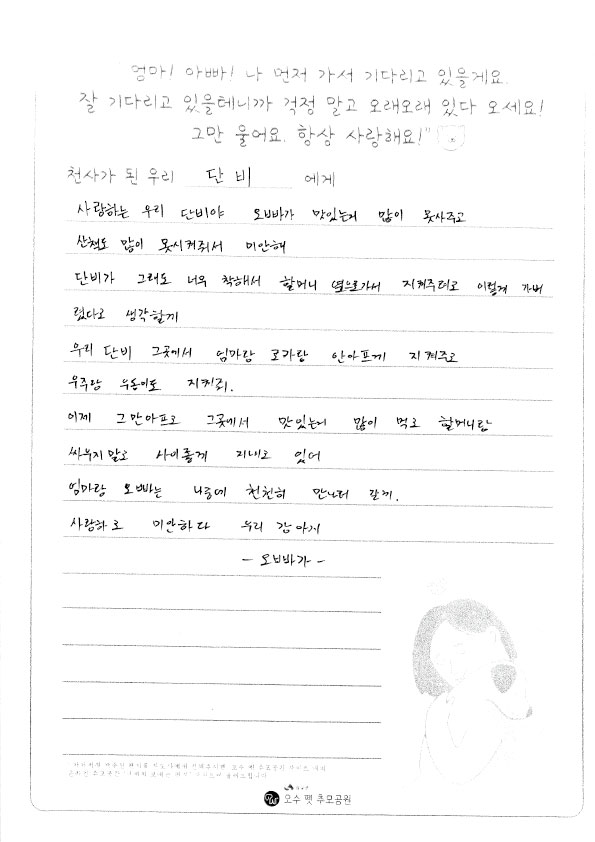 엄마! 아빠! 나 먼저 가서 기다리고 있을게요.
잘 기다리고 있을테니까 걱정 말고 오래오래 있다 오세요!
그만 울어요. 항상 사랑해요!"
천사가 된 우리 단비 에게
사랑하는 우리 단비야 오빠가 맛있는거 많이 못사주고
산책도 많이 못시켜줘서 미안해
단비가 그래도 너무 착해서 할머니 옆으로가서 지켜주려고 이렇게 가버
렸다고 생각할께
우리 단비 그곳에서 엄마랑 로가랑 안아프게 지켜주고
우주랑 우동이도 지켜줘.
이제 그만아프고 그곳에서 맛있는거 많이 먹고 할머니랑
싸우지말고 사이좋게 지내고 있어
엄마랑 오빠는 나중에 천천히 만나러 갈께.
사랑하고 미안하다 우리 강아지
- 오빠가 -
오수 펫 추모공원